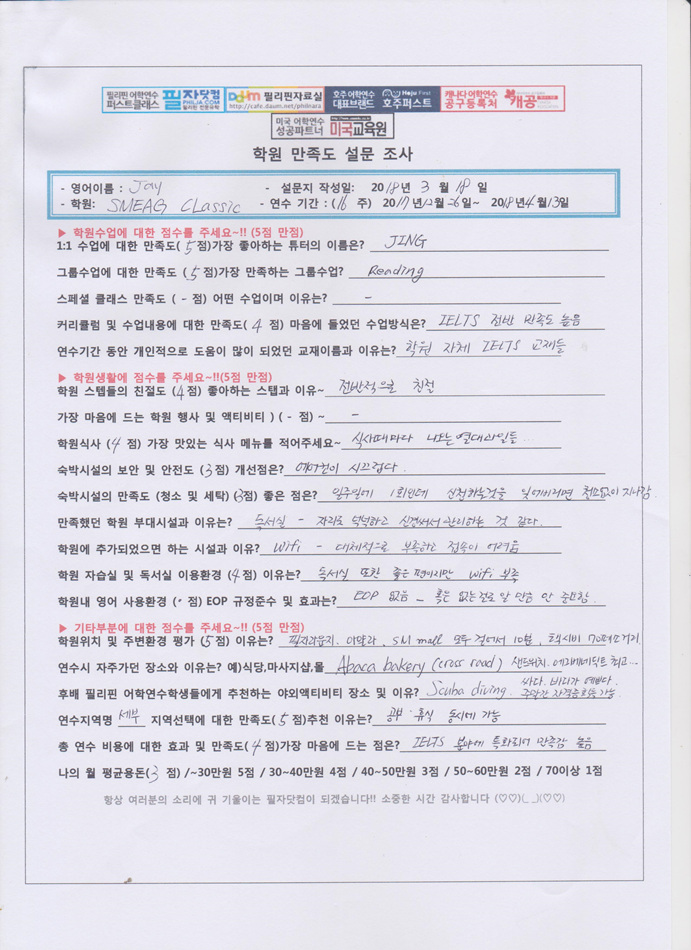 필리핀 어학연수 퍼스트클래스 필자닷컴 PHILJA.COM Daum 필리핀자료실 http://cafe.daum.net/philnara 호주 어학연수 대표브랜드 Hoju First 호주퍼스트 캐나다 어학연수 공구등록처 캐공
미국 어학연수 성공파트너 미국교육원
학원 만족도 설문 조사
- 영어이름 : Jay - 설문지 작성일: 2018년 3 월 18 일
- 학원: SMEAG Classic - 연수 기간 : (16 주) 2017년 12월 26일~ 2018년 4월 13일
▶ 학원수업에 대한 점수를 주세요~!! (5점 만점)
1:1 수업에 대한 만족도( 5 점)가장 좋아하는 튜터의 이름은? JING
그룹수업에 대한 만족도 ( 5 점)가장 만족하는 그룹수업? Reading
스페셜 클래스 만족도 ( - 점) 어떤 수업이며 이유는? -
커리큘럼 및 수업내용에 대한 만족도( 4 점) 마음에 들었던 수업방식은? IELTS 전반 만족도 높음
연수기간 동안 개인적으로 도움이 많이 되었던 교재이름과 이유는? 학원 자체 IELTS 교재들
▶ 학원생활에 점수를 주세요~!!(5점 만점)
학원 스텝들의 친절도 ( 4 점) 좋아하는 스탭과 이유~ 전반적으로 친절
가장 마음에 드는 학원 행사 및 액티비티 ) ( - 점) ~ -
학원식사 ( 4 점) 가장 맛있는 식사 메뉴를 적어주세요~ 식사때마다 나오는 열대과일들...
숙박시설의 보안 및 안전도 ( 3 점) 개선점은? 에어컨이 시끄럽다.
숙박시설의 만족도 (청소 및 세탁) (3점) 좋은 점은? 일주일에 1회인데 신청하는것을 잊어버리면 청소없이 지나감.
만족했던 학원 부대시설과 이유는? 독서실 - 자리도 넉넉하고 신경써서 관리하는 것 같다.
학원에 추가되었으면 하는 시설과 이유? Wifi - 대체적으로 부족하고 접속이 어려움
학원 자습실 및 독서실 이용환경 ( 4 점) 이유는? 독서실 또한 좋은 편이지만 wifi 부족
학원내 영어 사용환경 ( • 점) EOP 규정준수 및 효과는? EOP 없음 - 혹은 없는걸로 알 만큼 안 준수함.
▶ 기타부분에 대한 점수를 주세요~!! (5점 만점)
학원위치 및 주변환경 평가 ( 5 점) 이유는? 아얄라, SM mall 모두 걸어서 10분, 택시비 70페소거리.
연수시 자주가던 장소와 이유는? 예)식당,마사지샵,몰 Abaca bakery (cross road) 샌드위치. 에그베네딕트 최고...
후배 필리핀 어학연수학생들에게 추천하는 야외액티비티 장소 및 이유? Scuba diving. 싸다. 바다가 예쁘다. 주말간 자격증취득가능.
연수지역명 세부 지역선택에 대한 만족도( 5 점)추천 이유는? 공부·휴식 동시에 가능
총 연수 비용에 대한 효과 및 만족도( 4 점)가장 마음에 드는 점은? IELTS 분야에 특화되어 만족감 높음
나의 월 평균용돈( 3 점) /~30만원 5점 / 30~40만원 4점 / 40~50만원 3점 / 50~60만원 2점 / 70이상 1점
항상 여러분의 소리에 귀 기울이는 필자닷컴이 되겠습니다!! 소중한 시간 감사합니다 (♡♡)(_ _)(♡♡)